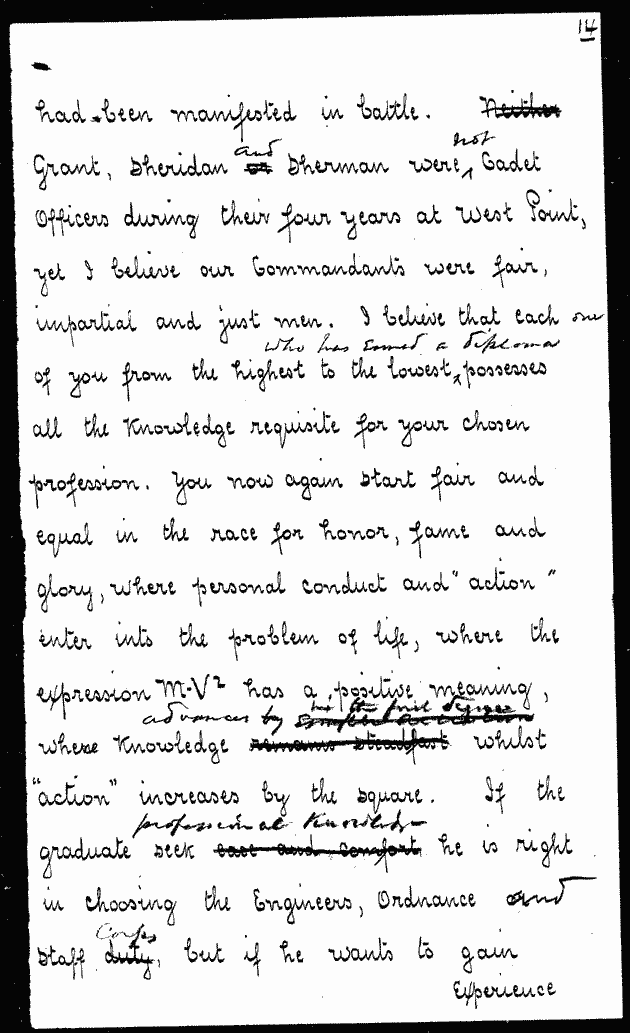 14
had been manifested in battle. Neither
and not
Grant, Sheridan or Sherman were Cadet
Officers during their four years at West Point,
yet I believe our Commandants were fair,
impartial and just men. I believe that each one
who has earned a diploma
of you from the highest to the lowest possesses
all the Knowledge requisite for your chosen
profession. You now again start fair and
equal in the race for honor, fame and
glory, where personal conduct and "action"
enter into the problem of life, where the
expression M-V² has a positive meaning,
advances by the first degree
where Knowledge remains steadfast whilst
"action" increases by the square. If the
professional Knowledge
graduate seek ease and comfort he is right
in choosing the Engineers, Ordnance and
Corps
Staff duty, but if he wants to gain
Experience